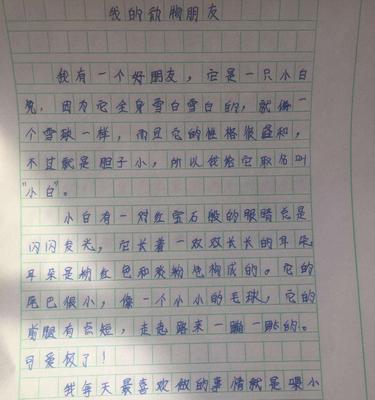 我的动物朋友
我有一个好朋友，它是一只小白
兔，因为它全身雪白雪白的，就像一
个雪球一样，而且它的性格很温和，
不过就是胆子小，所以我给它取名叫
“小白”。
小白有一对红宝石般的眼睛总是
闪闪发光，它长着一双双长长的耳朵，
耳朵是纳红色和灰粉色构成的。它的
尾巴很小，像一个小小的毛球，它的
前腿有点短，走起路来一蹦一跳的。
可爱极了！
我每天最喜欢做的事情就是喂小